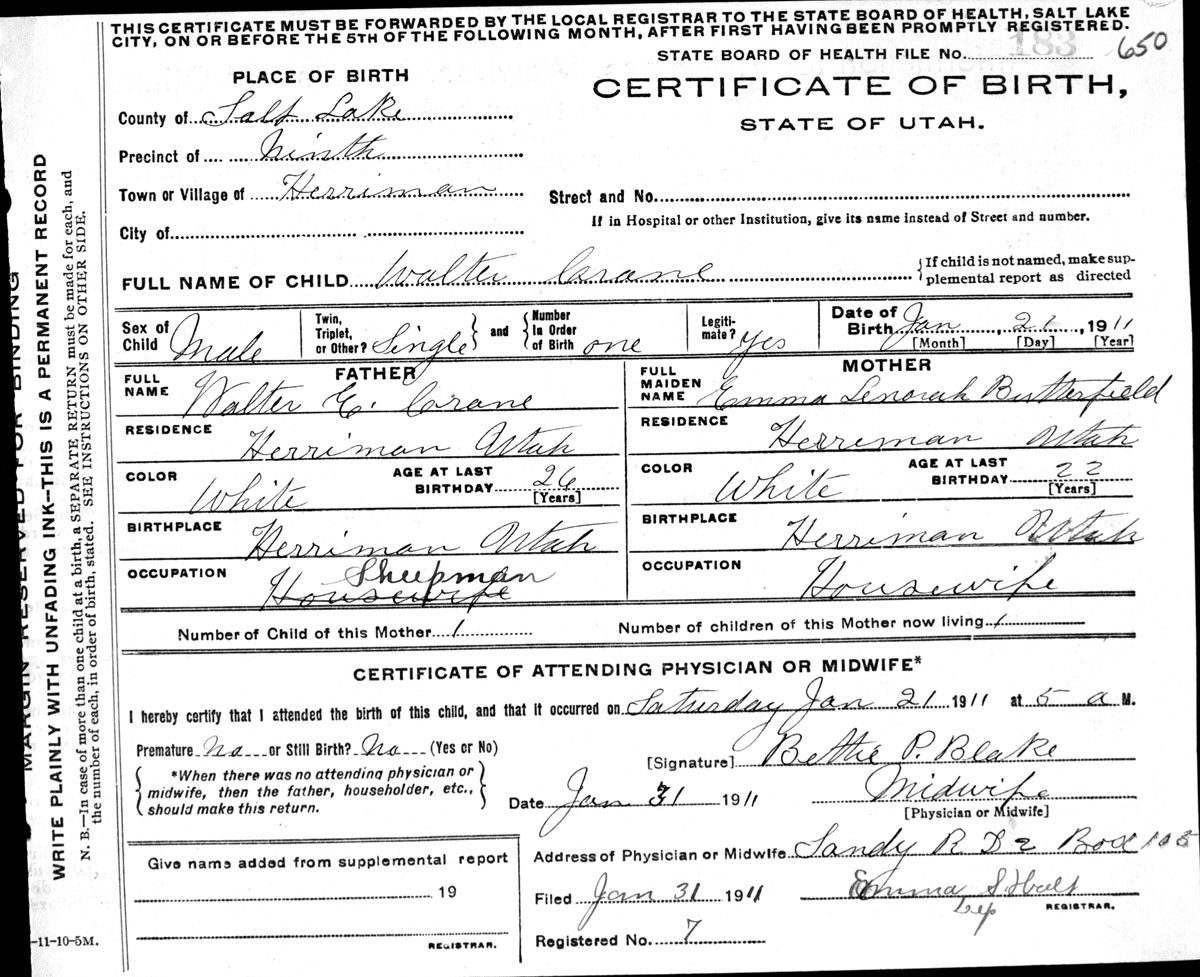 THIS CERTIFICATE MUST BE FORWARDED BY THE LOCAL REGISTRAR TO THE STATE BOARD OF HEALTH, SALT LAKE
CITY, ON OR BEFORE THE 5TH OF THE FOLLOWING MONTH, AFTER FIRST HAVING BEEN PROMPTLY REGISTERED.
STATE BOARD OF HEALTH FILE No. 183 650
PLACE OF BIRTH
CERTIFICATE OF BIRTH,
STATE OF UTAH.
County of Salt Lake
Precinct of Ninth
Town or Village of Herriman
Street and No.
If in Hospital or other Institution, give its name instead of Street and number.
City of
FULL NAME OF CHILD Walter Crane
If child is not named, make sup-
plemental report as directed
Sex of Child Male
Twin, Triplet, or Other? Single
and
Number In Order of Birth one
Legiti-mate? Yes
Date of Birth Jan 21, 1911
[Month] [Day] [Year]
FATHER
FULL NAME Walter E. Crane
RESIDENCE Herriman Utah
COLOR White
AGE AT LAST BIRTHDAY 26
[Years]
BIRTHPLACE Herriman Utah
OCCUPATION Sheepman
Housewife
MOTHER
FULL MAIDEN NAME Emma Lenorah Butterfield
RESIDENCE Herriman Utah
COLOR White
AGE AT LAST BIRTHDAY 22
[Years]
BIRTHPLACE Herriman Utah
OCCUPATION Housewife
Number of Child of this Mother 1
Number of children of this Mother now living 1
CERTIFICATE OF ATTENDING PHYSICIAN OR MIDWIFE*
I hereby certify that I attended the birth of this child, and that it occurred on Saturday Jan 21 1911 at 5 a M.
Premature No or Still Birth? No (Yes or No)
[Signature] Bettie P. Blake
*When there was no attending physician or
midwife, then the father, householder, etc.,
should make this return.
Date Jan 31 1911
Midwife
[Physician or Midwife]
Give name added from supplemental report
19
REGISTRAR.
Address of Physician or Midwife Sandy R D 2 Box 105
Filed Jan 31 1911
Emma S
Dep REGISTRAR.
Registered No. 7
MARGIN RESERVED FOR BINDING
WRITE PLAINLY WITH UNFADING INK–THIS IS A PERMANENT RECORD
N. B.—In case of more than one child at a birth, a SEPARATE RETURN must be made for each, and
the number of each, in order of birth, stated. SEE INSTRUCTIONS ON OTHER SIDE.
-11-10-5M.